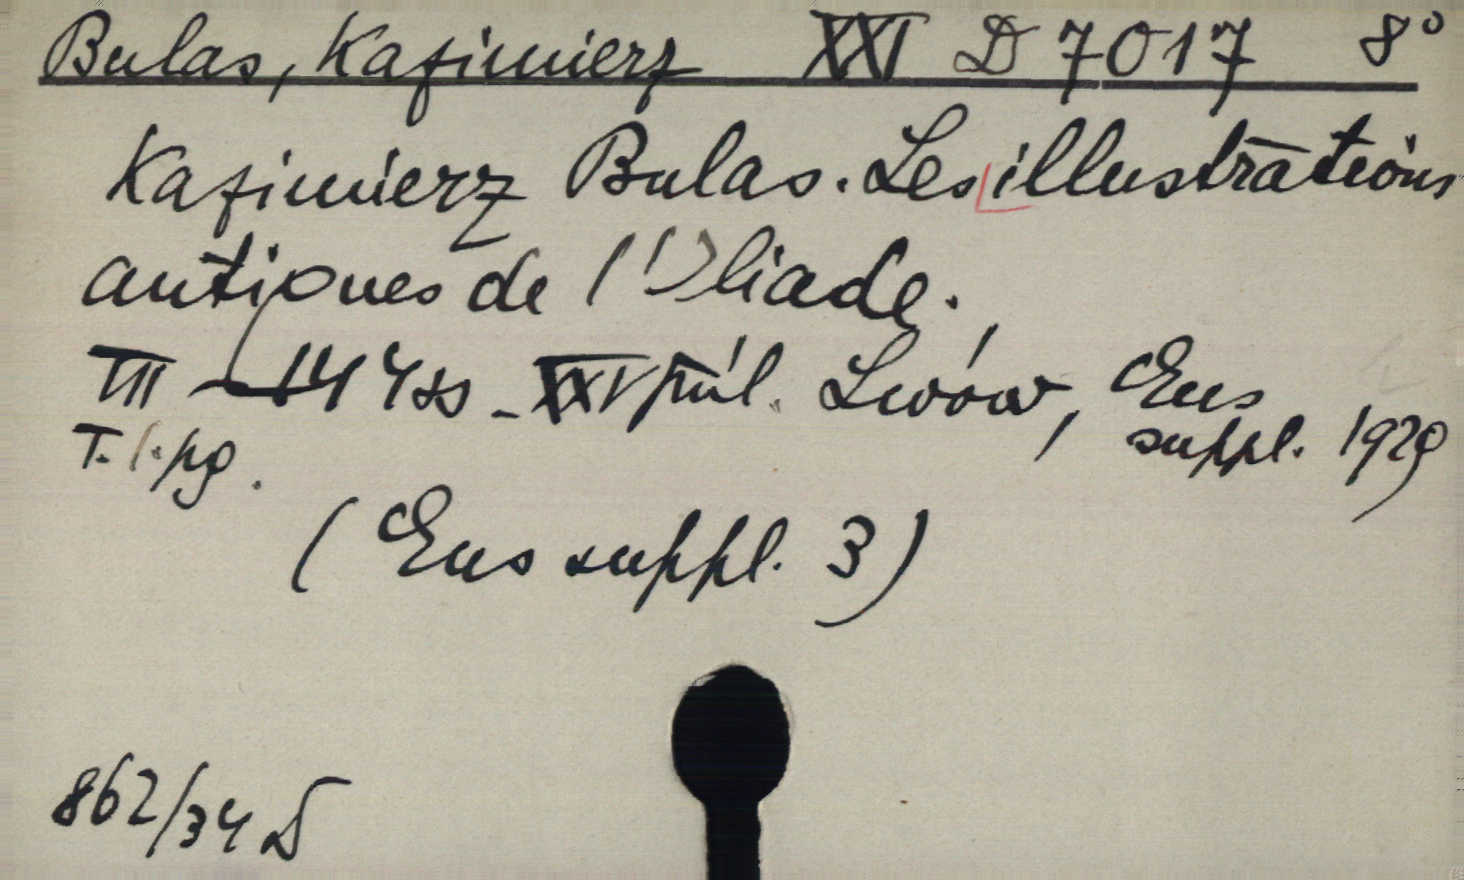 Bulas, Kazimierz XXI D 7017 8°
Kazimierz Bulas. Les illustrations
antiques de l'Iliade.
III - 144 ss - XXV příl. Lwów, Eus
T. l. pg. suppl. 1929
(Eus suppl. 3)
862/34 D